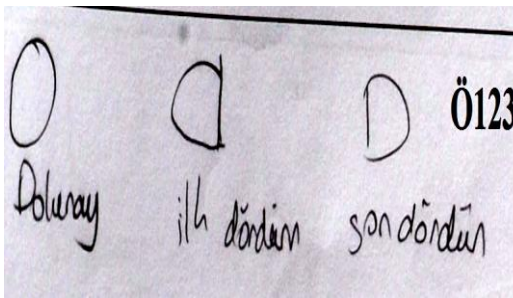 Ö123
Dolunay ilk dördün son dördün